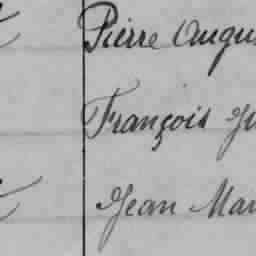 Pierre Augus
François Ju
Jean Mar